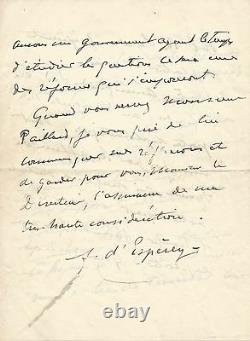 aucun gouvernement ayant le temps
d'étudier la question
des réformes qui s'imposent.
Quand vous verrez Monsieur
Paillard, je vous prie de lui
communiquer
de garder pour vous, Monsieur le
Directeur, l'assurance de ma
très haute considération.
f. d'Espérey